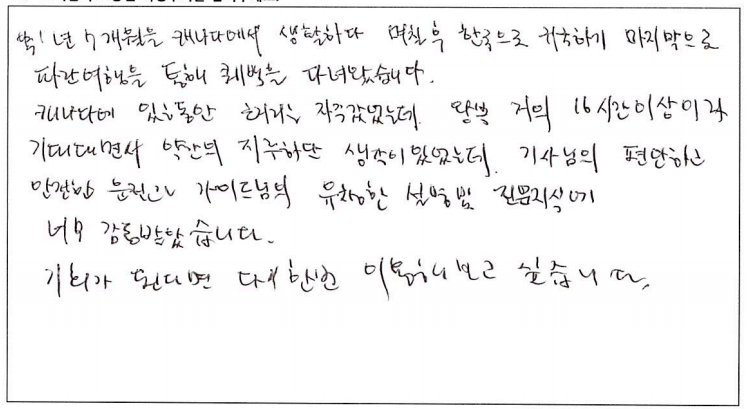 딱 1년 7개월을 캐나다에서 생활하다 며칠후 한국으로 귀국하기 마지막으로
파란여행을 통해 퀘벡을 다녀왔습니다.
캐나다에 있는동안 자주갔었는데, 왕복 거의 16시간이상이라
기대대면서 약간의 지루하단 생각이 있었는데, 기사님의 편안하고
안전한 운전과 가이드님의 유창한 설명 및 전문지식에
너무 감동받았습니다.
기회가 된다면 다시한번 이용해보고 싶습니다.